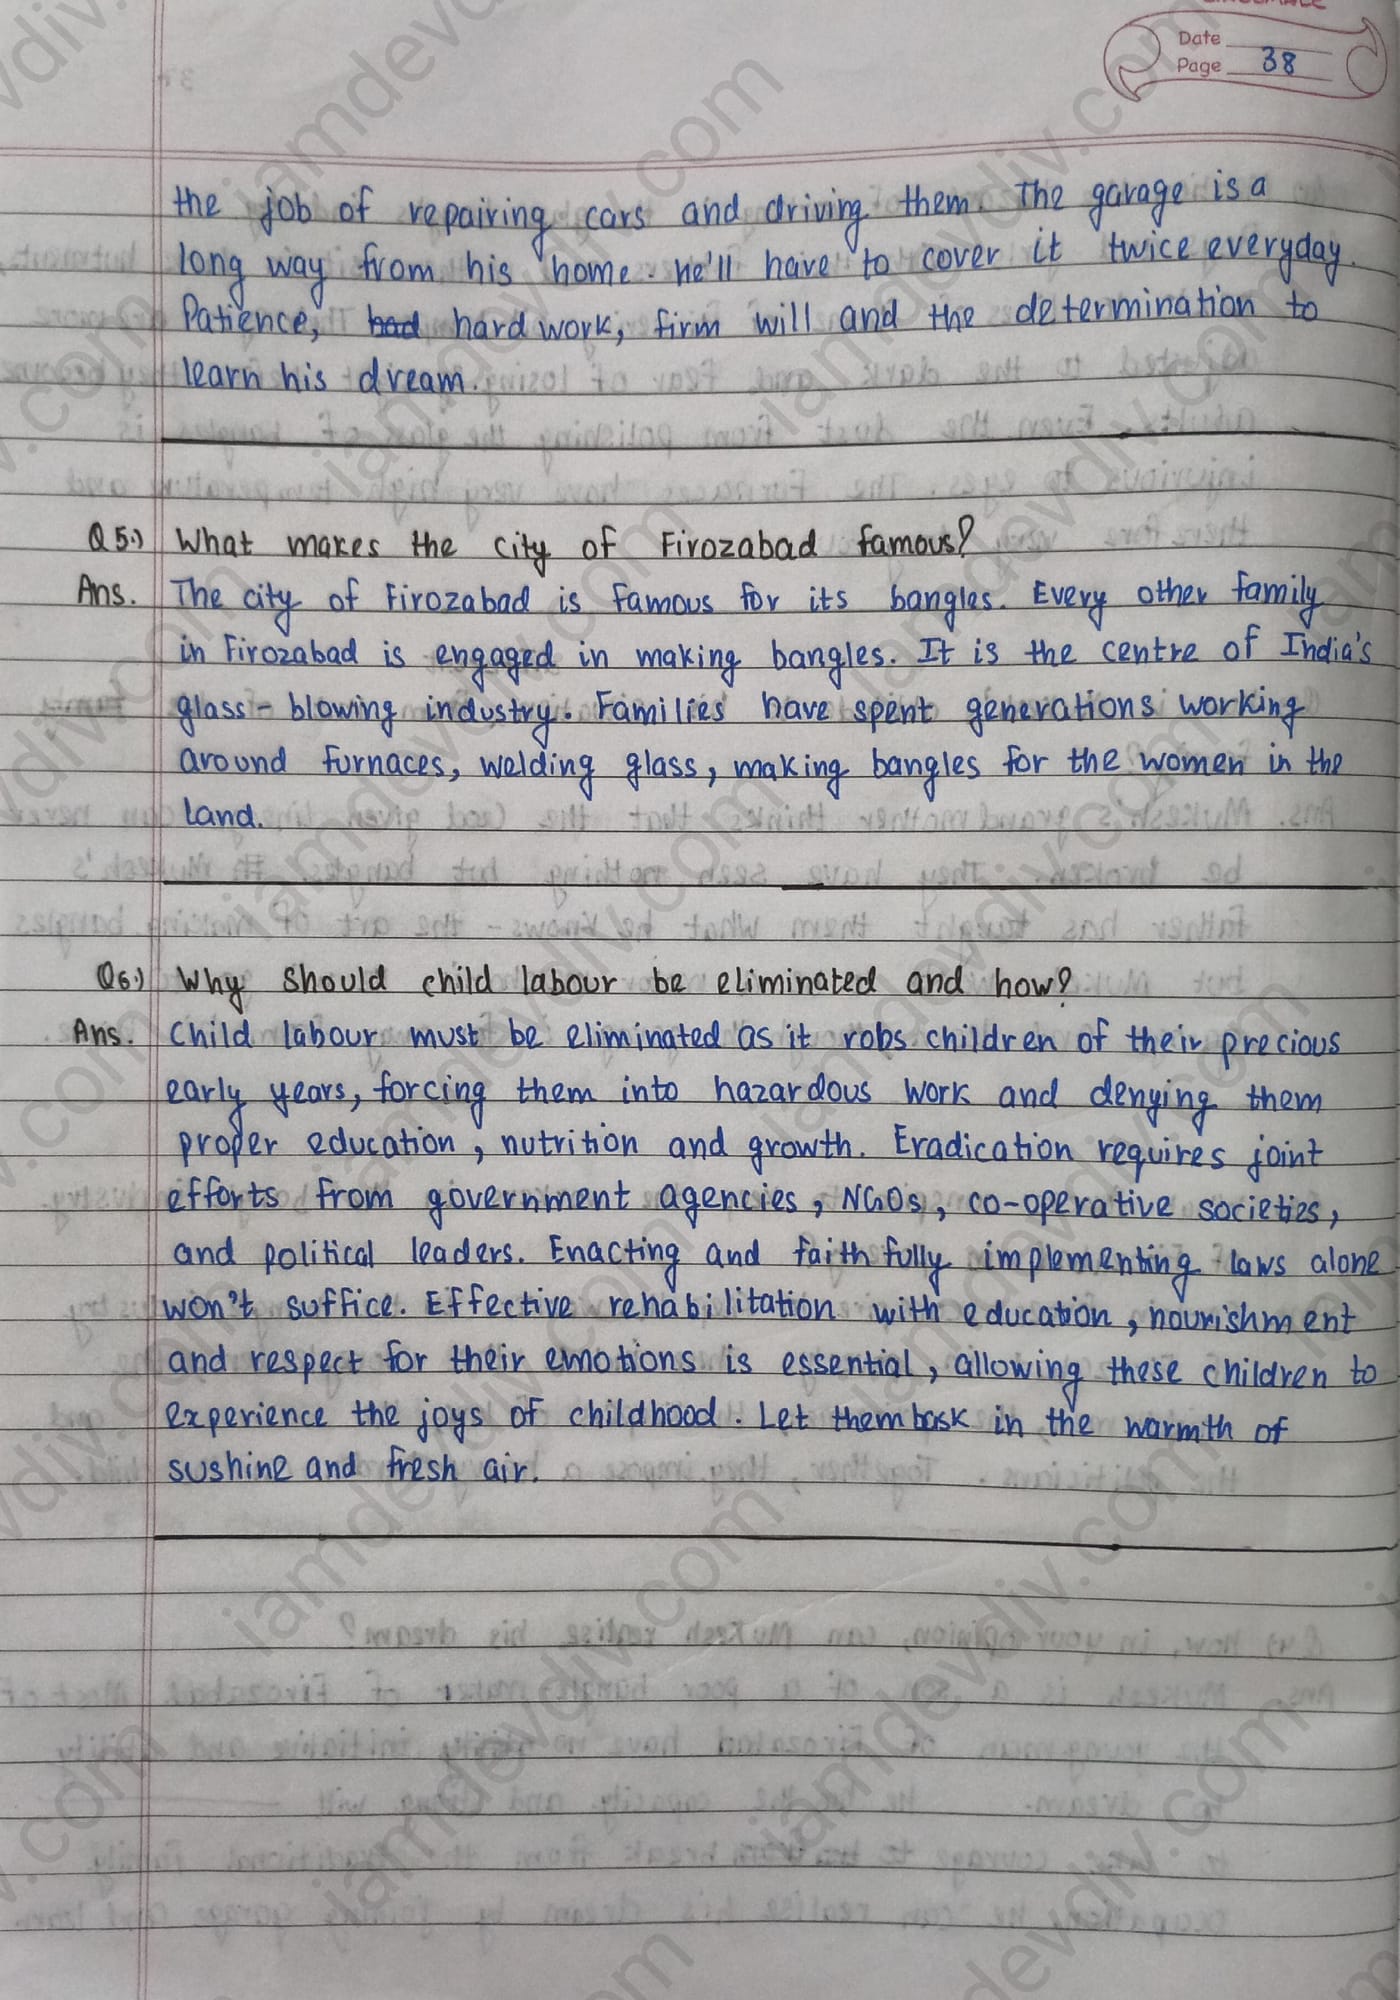 Date
Page 38
the job of repairing cars and driving them. The garage is a
long way from his home. He'll have to cover it twice everyday.
Patience, had hard work, firm will and the determination to
learn his dream.
Q5.) What makes the city of Firozabad famous?
Ans. The city of Firozabad is famous for its bangles. Every other family
in Firozabad is engaged in making bangles. It is the centre of India's
glass-blowing industry. Families have spent generations working
around furnaces, welding glass, making bangles for the women in the
land.
Q6.) Why should child labour be eliminated and how?
Ans. Child labour must be eliminated as it robs children of their precious
early years, forcing them into hazardous work and denying them
proper education, nutrition and growth. Eradication requires joint
efforts from government agencies, NGOs, co-operative societies,
and political leaders. Enacting and faithfully implementing laws alone
won't suffice. Effective rehabilitation with education, nourishment
and respect for their emotions is essential, allowing these children to
experience the joys of childhood. Let them bask in the warmth of
sushine and fresh air.
iamdevdiv.com